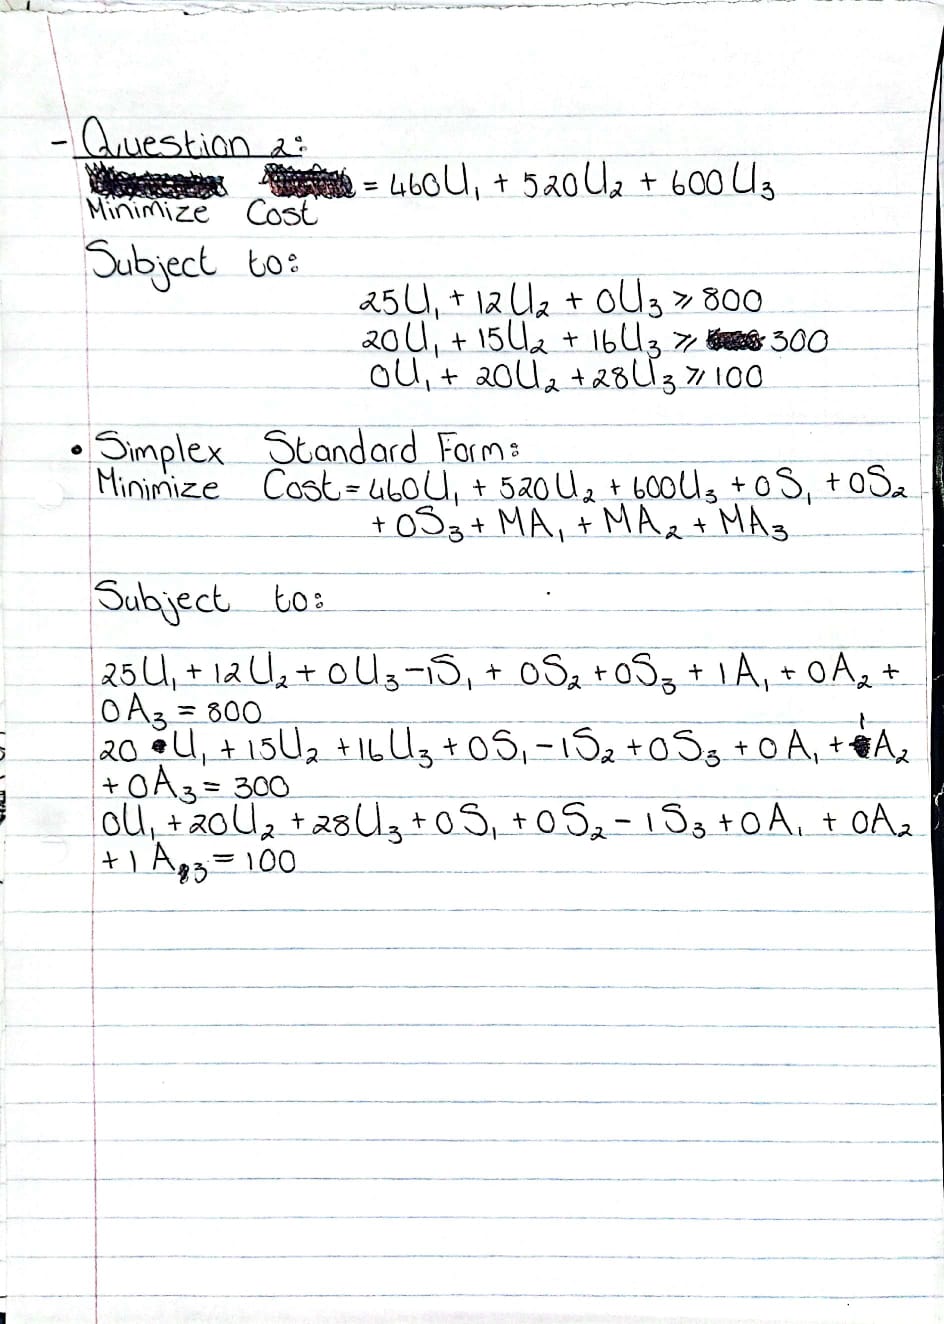 - Question 2:
= 460U₁ + 520U₂ + 600U₃
Minimize Cost
Subject to:
25U₁ + 12U₂ + 0U₃ ≥ 800
20U₁ + 15U₂ + 16U₃ ≥ 300
0U₁ + 20U₂ + 28U₃ ≥ 100
• Simplex Standard Form:
Minimize Cost = 460U₁ + 520U₂ + 600U₃ + 0S₁ + 0S₂
+ 0S₃ + MA₁ + MA₂ + MA₃
Subject to:
25U₁ + 12U₂ + 0U₃ - 1S₁ + 0S₂ + 0S₃ + 1A₁ + 0A₂ +
0A₃ = 800
20U₁ + 15U₂ + 16U₃ + 0S₁ - 1S₂ + 0S₃ + 0A₁ + 1A₂
+ 0A₃ = 300
0U₁ + 20U₂ + 28U₃ + 0S₁ + 0S₂ - 1S₃ + 0A₁ + 0A₂
+ 1A₃ = 100